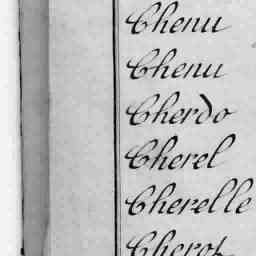 Chenu
Chenu
Cherdo
Cherel
Cherelle